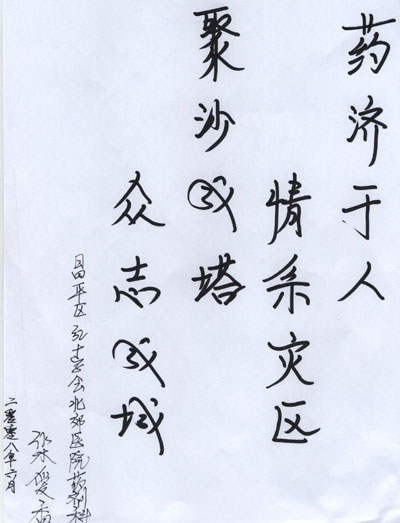 药济于人
情系灾区
聚沙成塔
众志成城
昌平区红十字会北郊医院药剂科
二零零八年六月